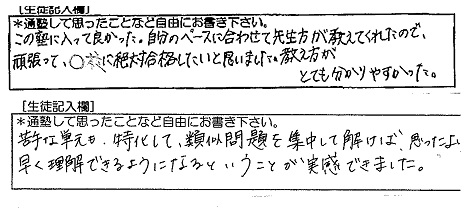 [生徒記入欄]
*通塾して思ったことなど自由にお書き下さい。
この塾に入って良かった。自分のペースに合わせて先生方が教えてくれたので、
頑張って、○大に絶対合格したいと思いました。教え方が
とても分かりやすかった。
[生徒記入欄]
*通塾して思ったことなど自由にお書き下さい。
苦手な単元も、特化して、類似問題を集中して解けば、思ったより
早く理解できるようになるということが実感できました。